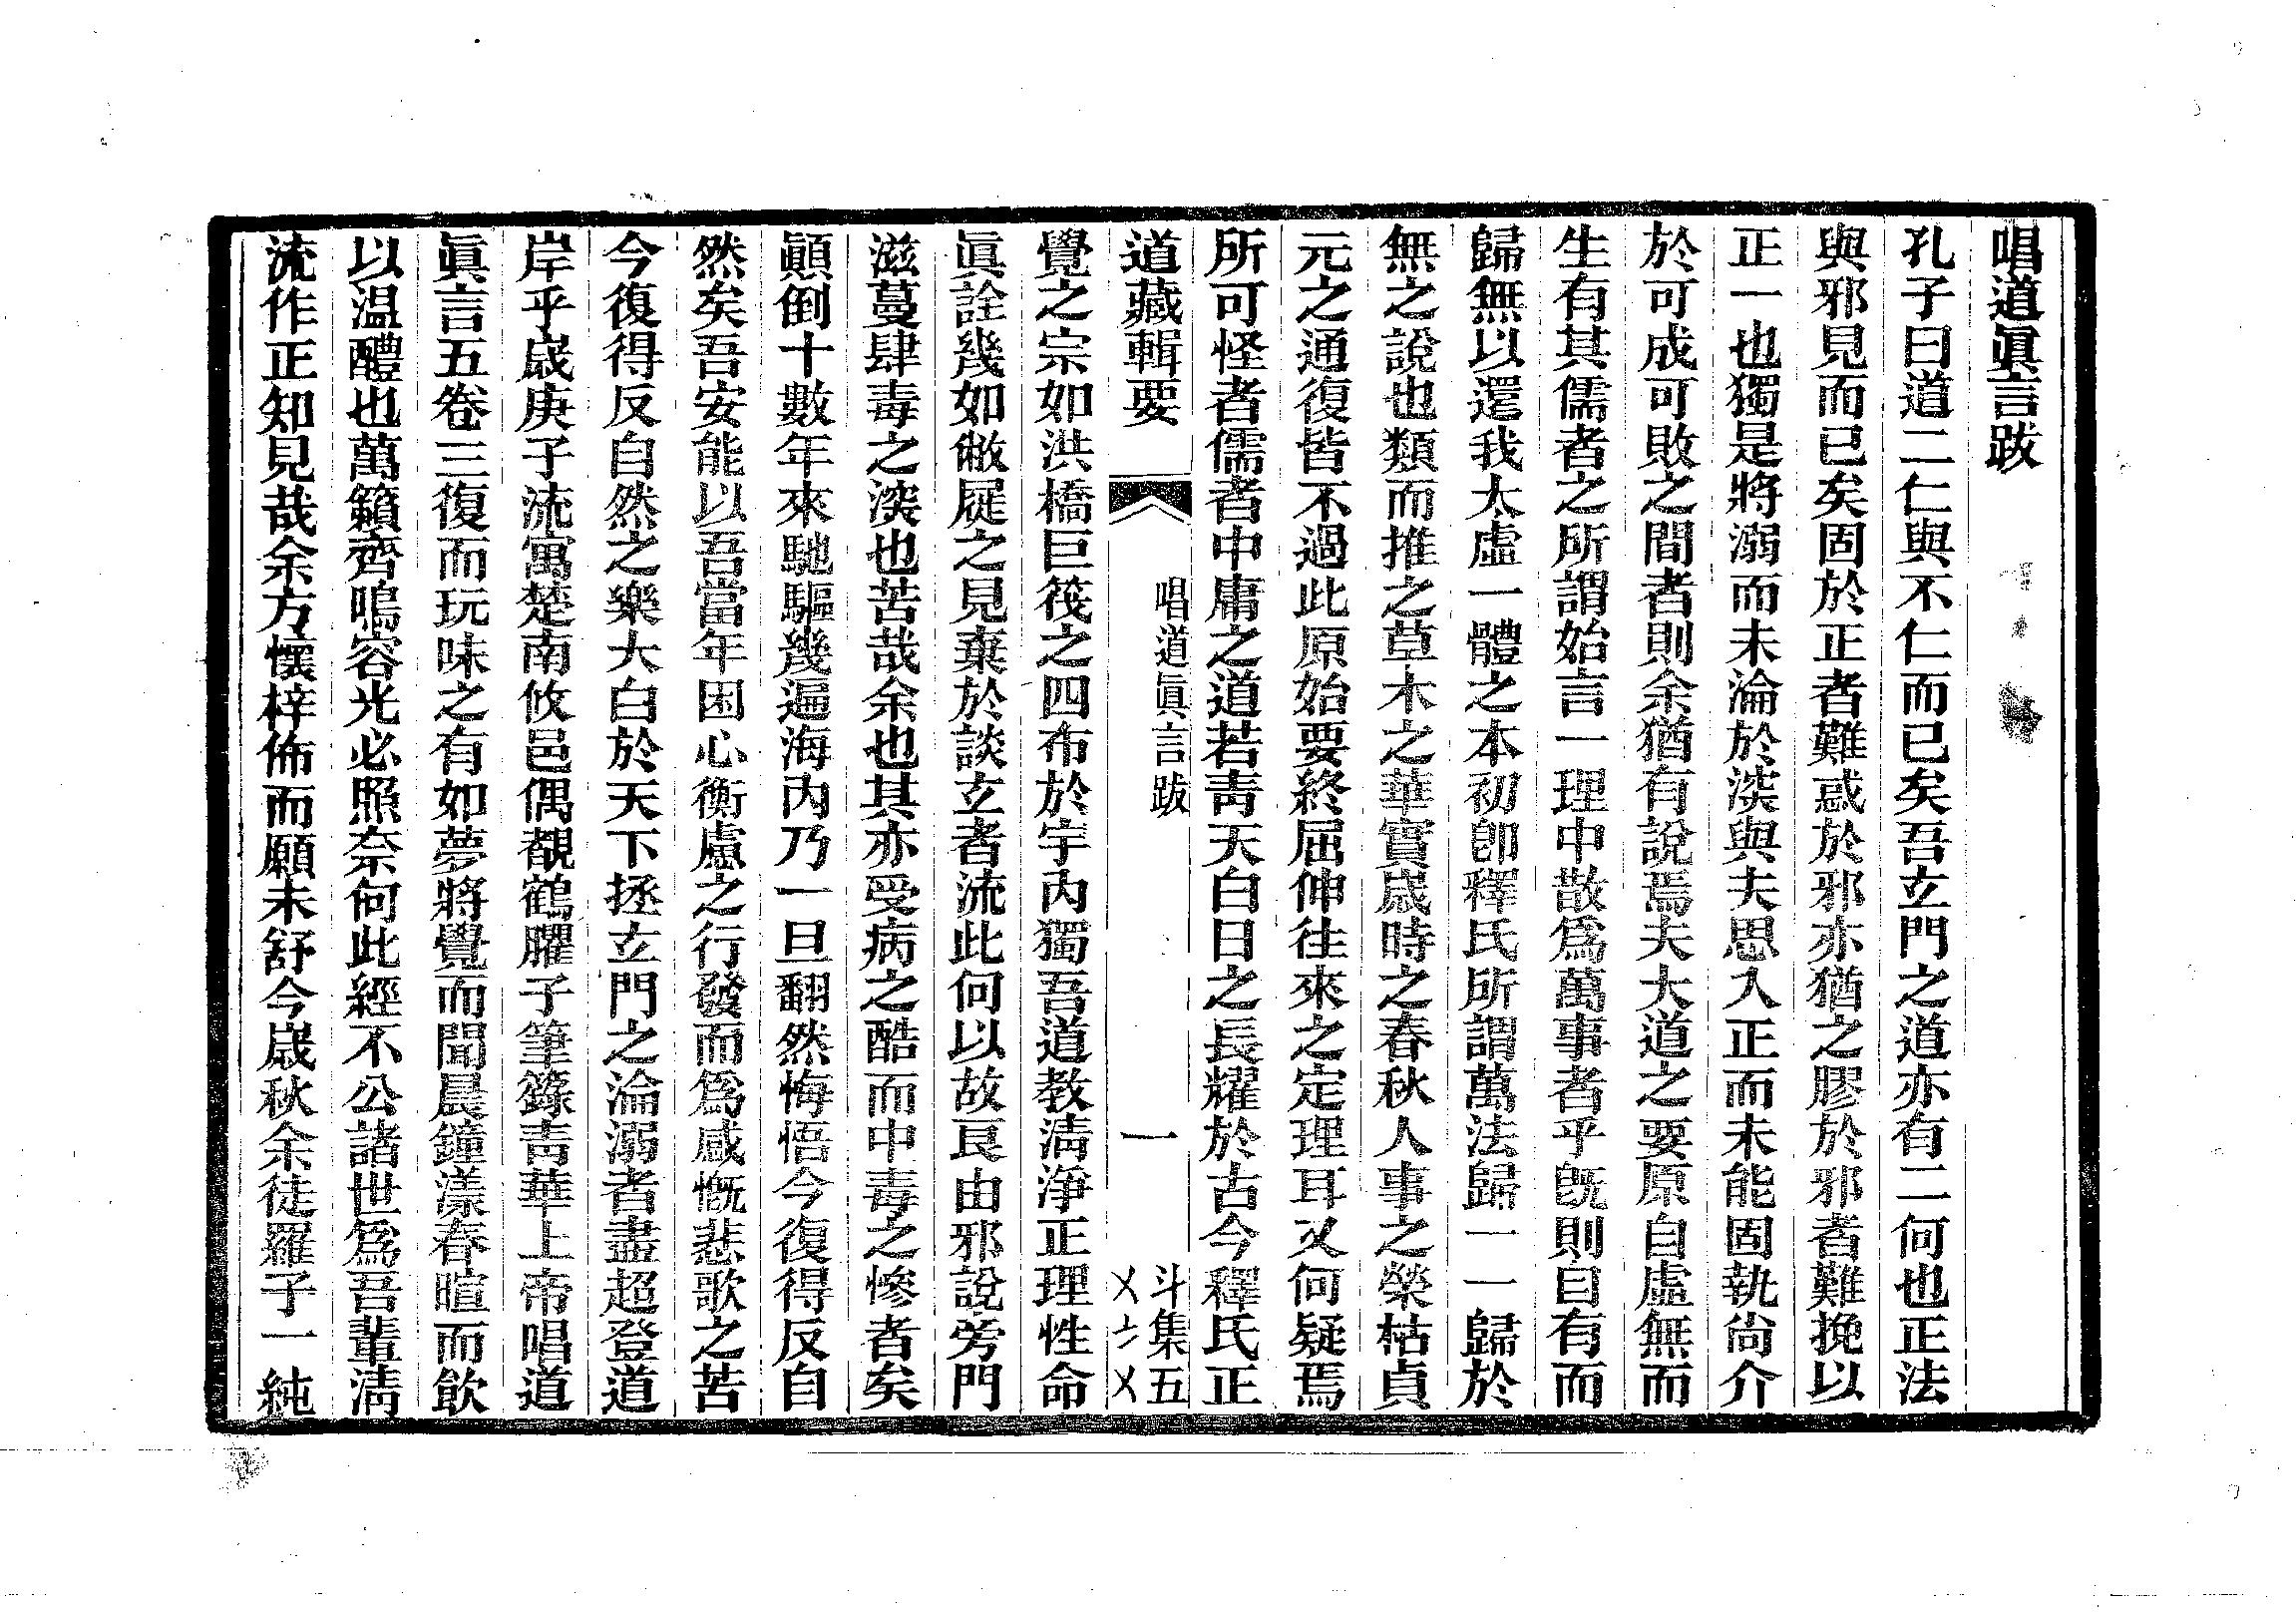 唱道眞言跋
孔子曰道二仁與不仁而已矣吾玄門之道亦有二何也正法
與邪見而已矣固於正者難惑於邪亦猶之膠於邪者難挽以
正一也獨是將溺而未淪於淡與夫思入正而未能固執尙介
於可成可敗之間者則余猶有說焉夫大道之要原自虛無而
生有其儒者之所謂始言一理中散爲萬事者乎旣則自有而
歸無以還我太虛一體之本初卽釋氏所謂萬法歸一一歸於
無之說也類而推之草木之華實歲時之春秋人事之榮枯貞
元之通復皆不過此原始要終屈伸往來之定理耳又何疑焉
所可怪者儒者中庸之道若靑天白日之長耀於古今釋氏正
道藏輯要
唱道眞言跋
一
斗集五
㐅㐅
覺之宗如洪橋巨筏之四布於宇內獨吾道教淸淨正理性命
眞詮幾如敝屣之見棄於談玄者流此何以故良由邪說旁門
滋蔓肆毒之深也苦哉余也其亦受病之酷而中毒之慘者矣
顚倒十數年來馳驅幾遍海內乃一旦翻然悔悟今復得反自
然矣吾安能以吾當年困心衡慮之行發而爲感慨悲歌之苦
今復得反自然之樂大白於天下拯玄門之淪溺者盡超登道
岸乎歲庚子流寓楚南攸邑偶覩鶴臞子筆錄靑華上帝唱道
眞言五卷三復而玩味之有如夢將覺而聞晨鐘漾春暄而飲
以温醴也萬籟齊鳴容光必照奈何此經不公諸世爲吾輩淸
流作正知見哉余方懷梓佈而願未舒今歲秋余徒羅子一純